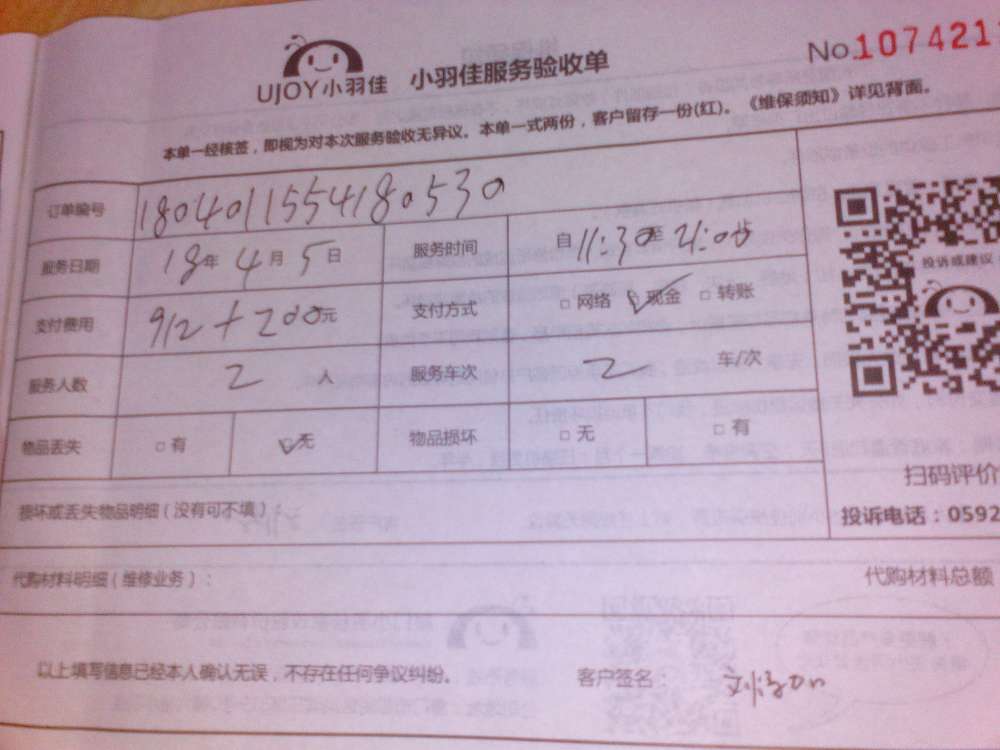 UJOY小羽佳 小羽佳服务验收单 No.1074211
本单一经核签，即视为对本次服务验收无异议。本单一式两份，客户留存一份(红)。《维保须知》详见背面。
订单编号 180401155418053０
服务日期 18年4月5日 服务时间 自11:30至21:00止
支付费用 912+200元 支付方式 □网络 ☑现金 □转账
服务人数 2 人 服务车次 2 车/次
物品丢失 □有 ☑无 物品损坏 □无 □有
投诉或建议
扫码评价
损坏或丢失物品明细（没有可不填）：
投诉电话：0592
代购材料明细（维修业务）：
代购材料总额
以上填写信息已经本人确认无误，不存在任何争议纠纷。 客户签名：